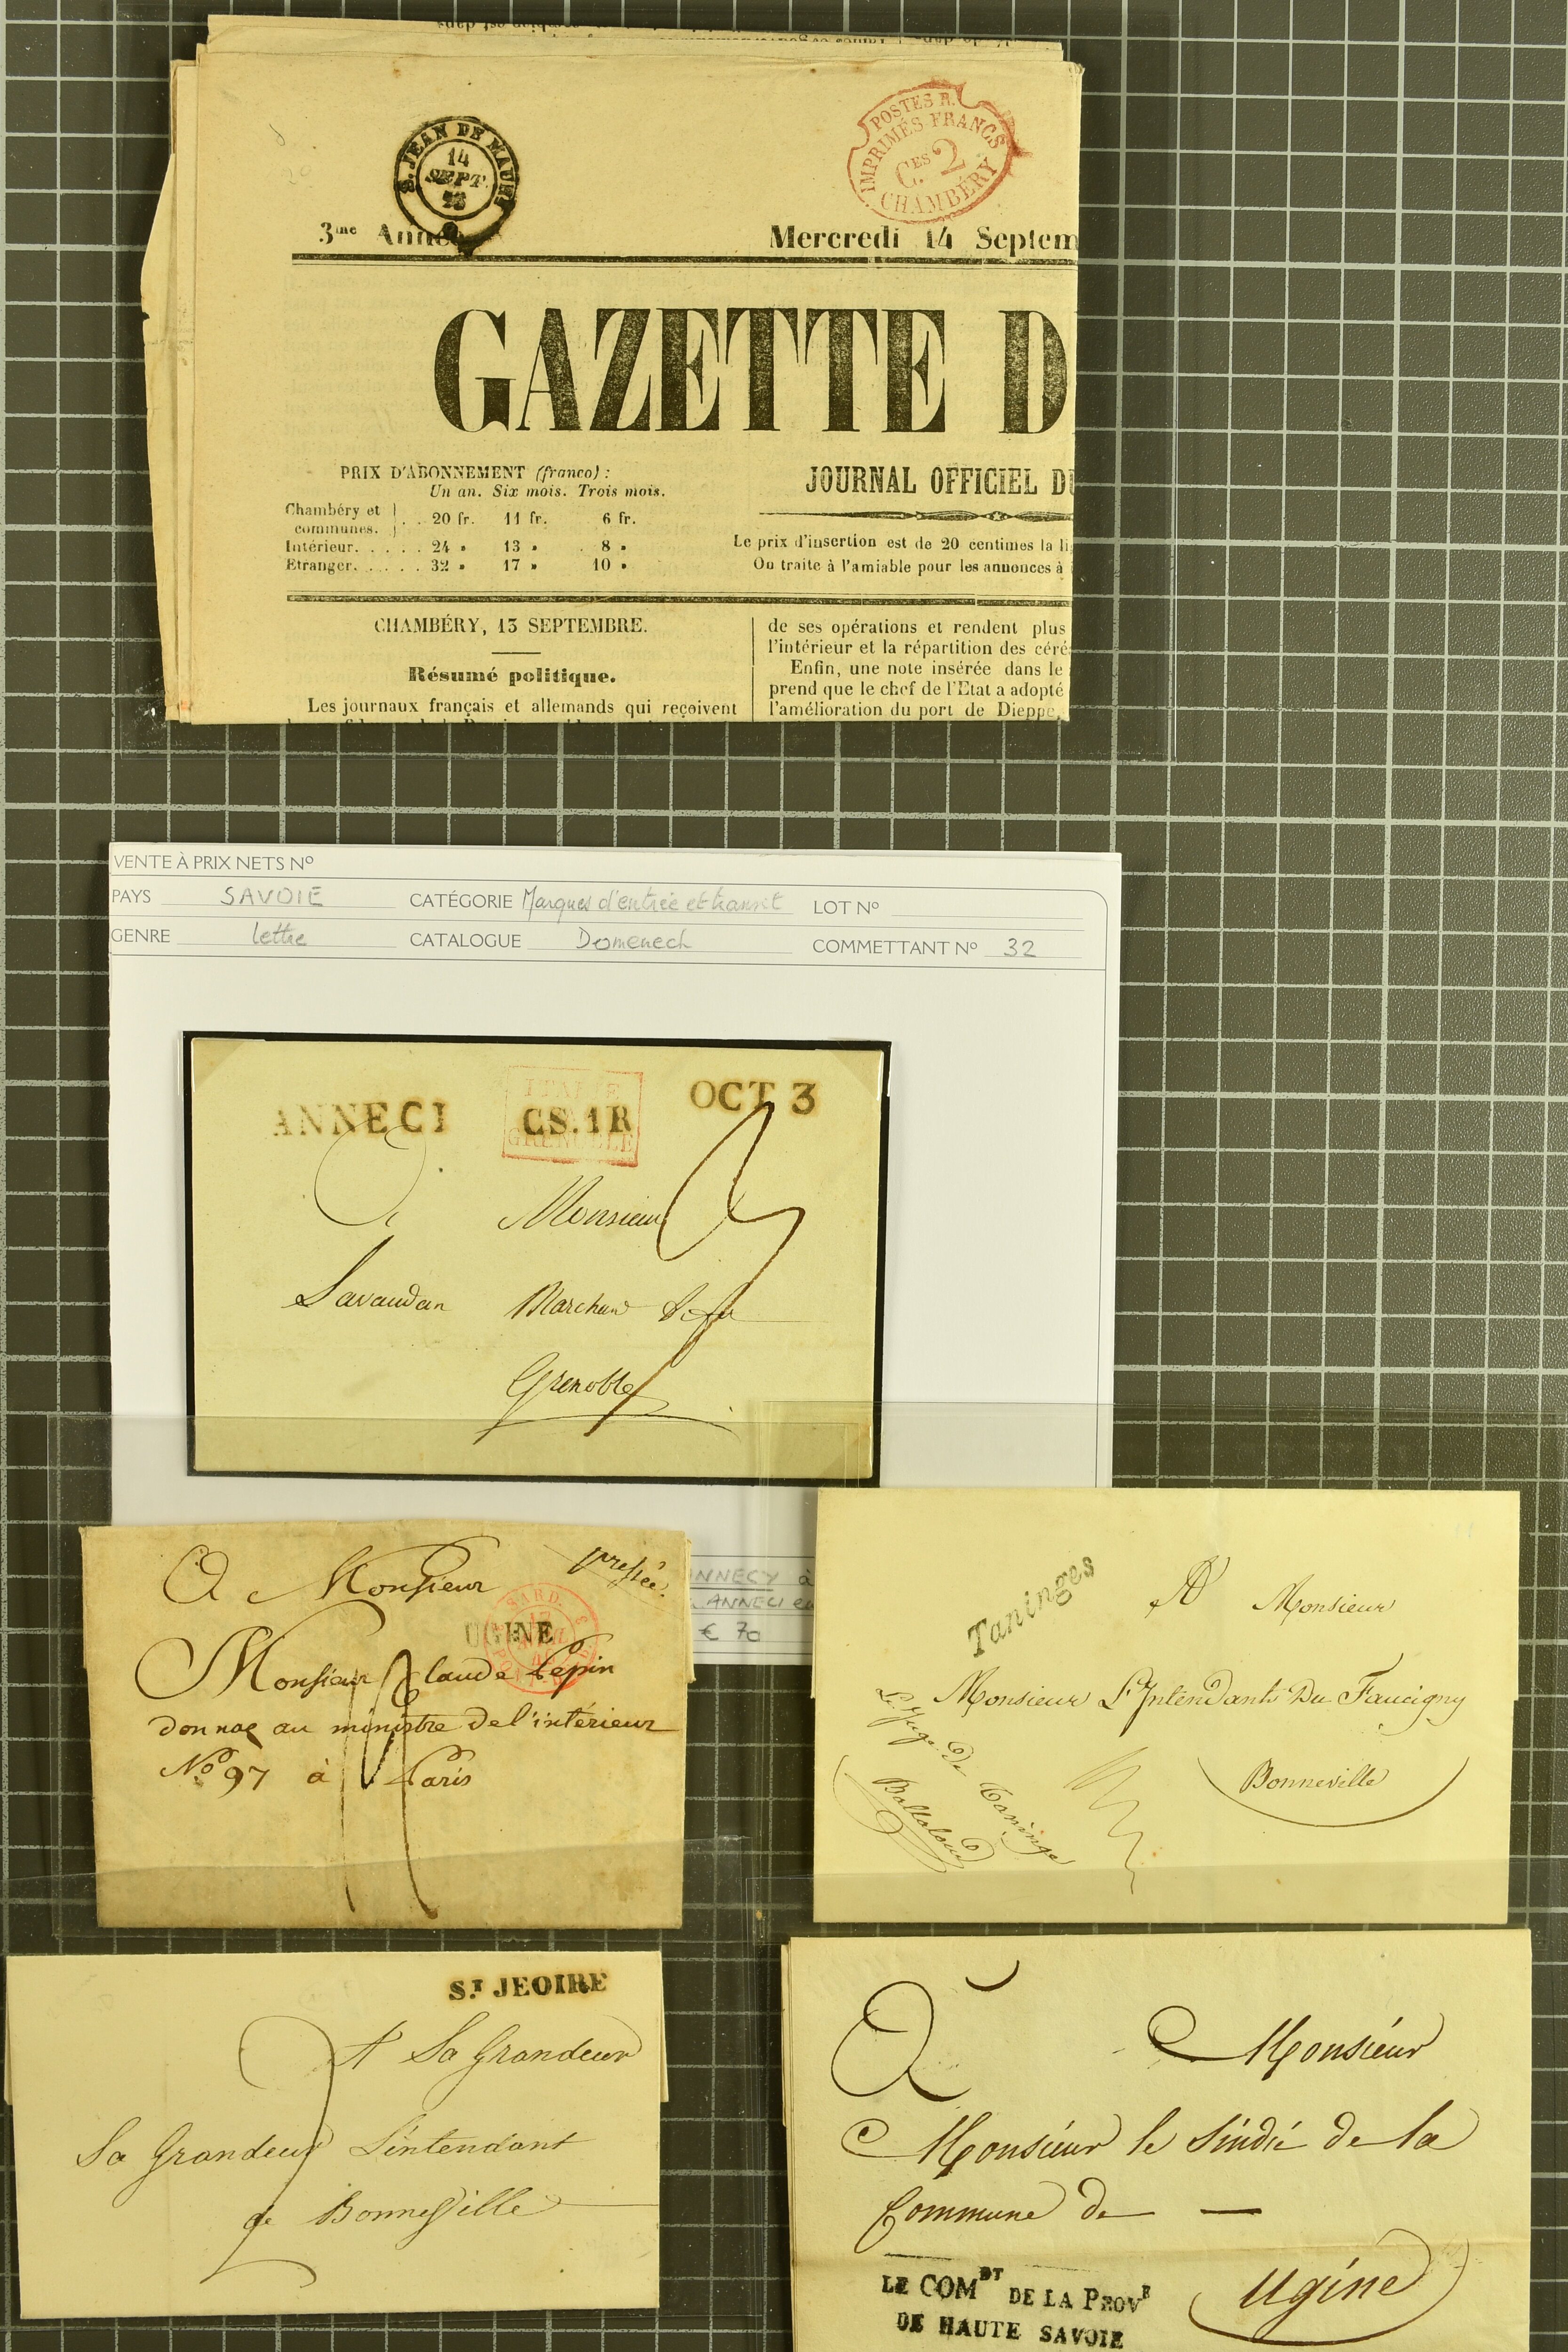 S. JEAN DE MAUR
14
SEPT.
POSTES R.
IMPRIMÉS FRANCS
Ces 2
C.
CHAMBÉRY
3me Année
Mercredi 14 Septem
GAZETTE D
PRIX D'ABONNEMENT (franco) :
Un an. Six mois. Trois mois.
Chambéry et communes. . . 20 fr. 11 fr. 6 fr.
Intérieur. . . . . 24 » 13 » 8 »
Etranger. . . . . 32 » 17 » 10 »
JOURNAL OFFICIEL DU
Le prix d'insertion est de 20 centimes la li
On traite à l'amiable pour les annonces à
CHAMBÉRY, 13 SEPTEMBRE.
Résumé politique.
Les journaux français et allemands qui reçoivent
de ses opérations et rendent plus
l'intérieur et la répartition des céré
Enfin, une note insérée dans le
prend que le chef de l'Etat a adopté
l'amélioration du port de Dieppe,
VENTE À PRIX NETS No
PAYS SAVOIE CATÉGORIE Marques d'entrée et transit LOT No
GENRE lettre CATALOGUE Domenech COMMETTANT No 32
ANNECI CS.1R OCT 3
ITALIE
GRENOBLE
A Monsieur
Lavaudan Marchand
Grenoble
NNECY à
ANNECI en
€ 70
A Monsieur pressée
SARD.
17
UGINE
Monsieur Claude Pepin
donnae au ministre de l'intérieur
No 97 à Paris
Taninges
A Monsieur
Monsieur L'Intendant Du Faucigny
Bonneville
Le Juge de Taninge
Ballaloud
St JEOIRE
A Sa Grandeur
Sa Grandeur L'intendant
de Bonneville
A Monsieur
Monsieur le Sindic de la
Commune de —
Ugine
LE COMDT DE LA PROVE
DE HAUTE SAVOIE